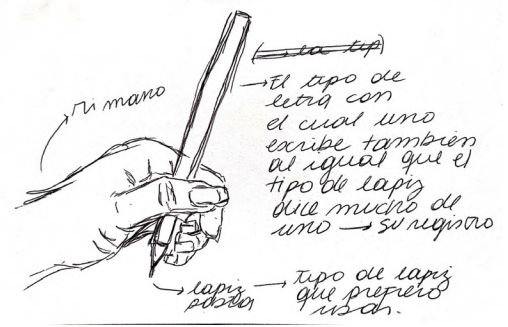 mi mano
→ El tipo de
letra con
el cual uno
escribe también
al igual que el
tipo de lapiz
dice mucho de
uno → su registro
→ lapiz
pasta
→ tipo de lapiz
que prefiero
usar.